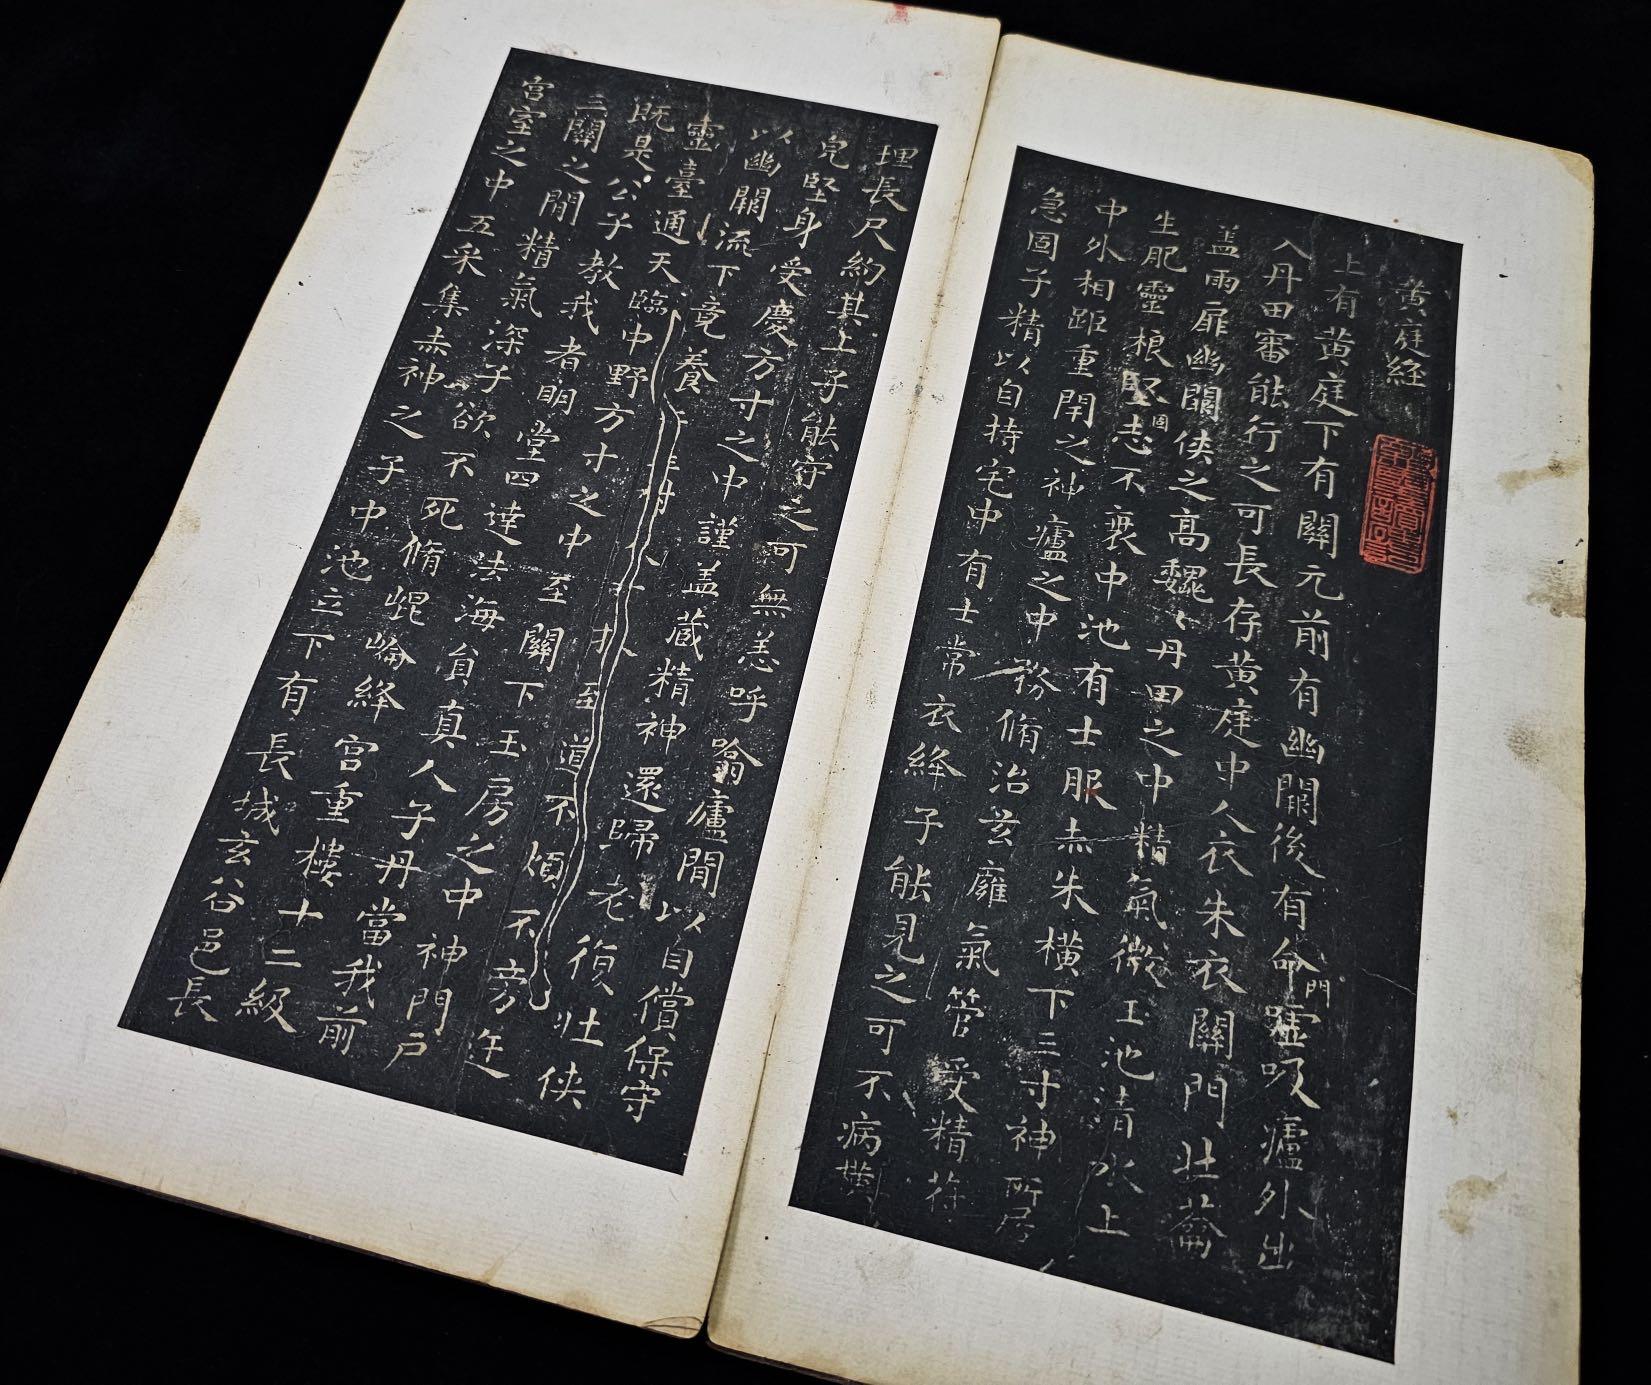 黄庭經
上有黄庭下有關元前有幽闕後有命門嘘吸廬外出
入丹田審能行之可長存黄庭中人衣朱衣關門壯籥
盖兩扉幽闕俠之高魏〻丹田之中精氣微玉池清水上
生肥靈根堅固志不衰中池有士服赤朱橫下三寸神所居
中外相距重閇之神廬之中務脩治玄廱氣管受精符
急固子精以自持宅中有士常衣絳子能見之可不病橫
理長尺約其上子能守之可無恙呼噏廬閒以自償保守
完堅身受慶方寸之中謹盖藏精神還歸老復壯俠
以幽闕流下竟養樹扶至道不煩不旁迕
靈臺通天臨中野方寸之中至關下玉房之中神門戶
既是公子教我者明堂四達法海負真人子丹當我前
三關之閒精氣深子欲不死脩崐崘絳宮重樓十二級
宫室之中五采集赤神之子中池立下有長城玄谷邑長